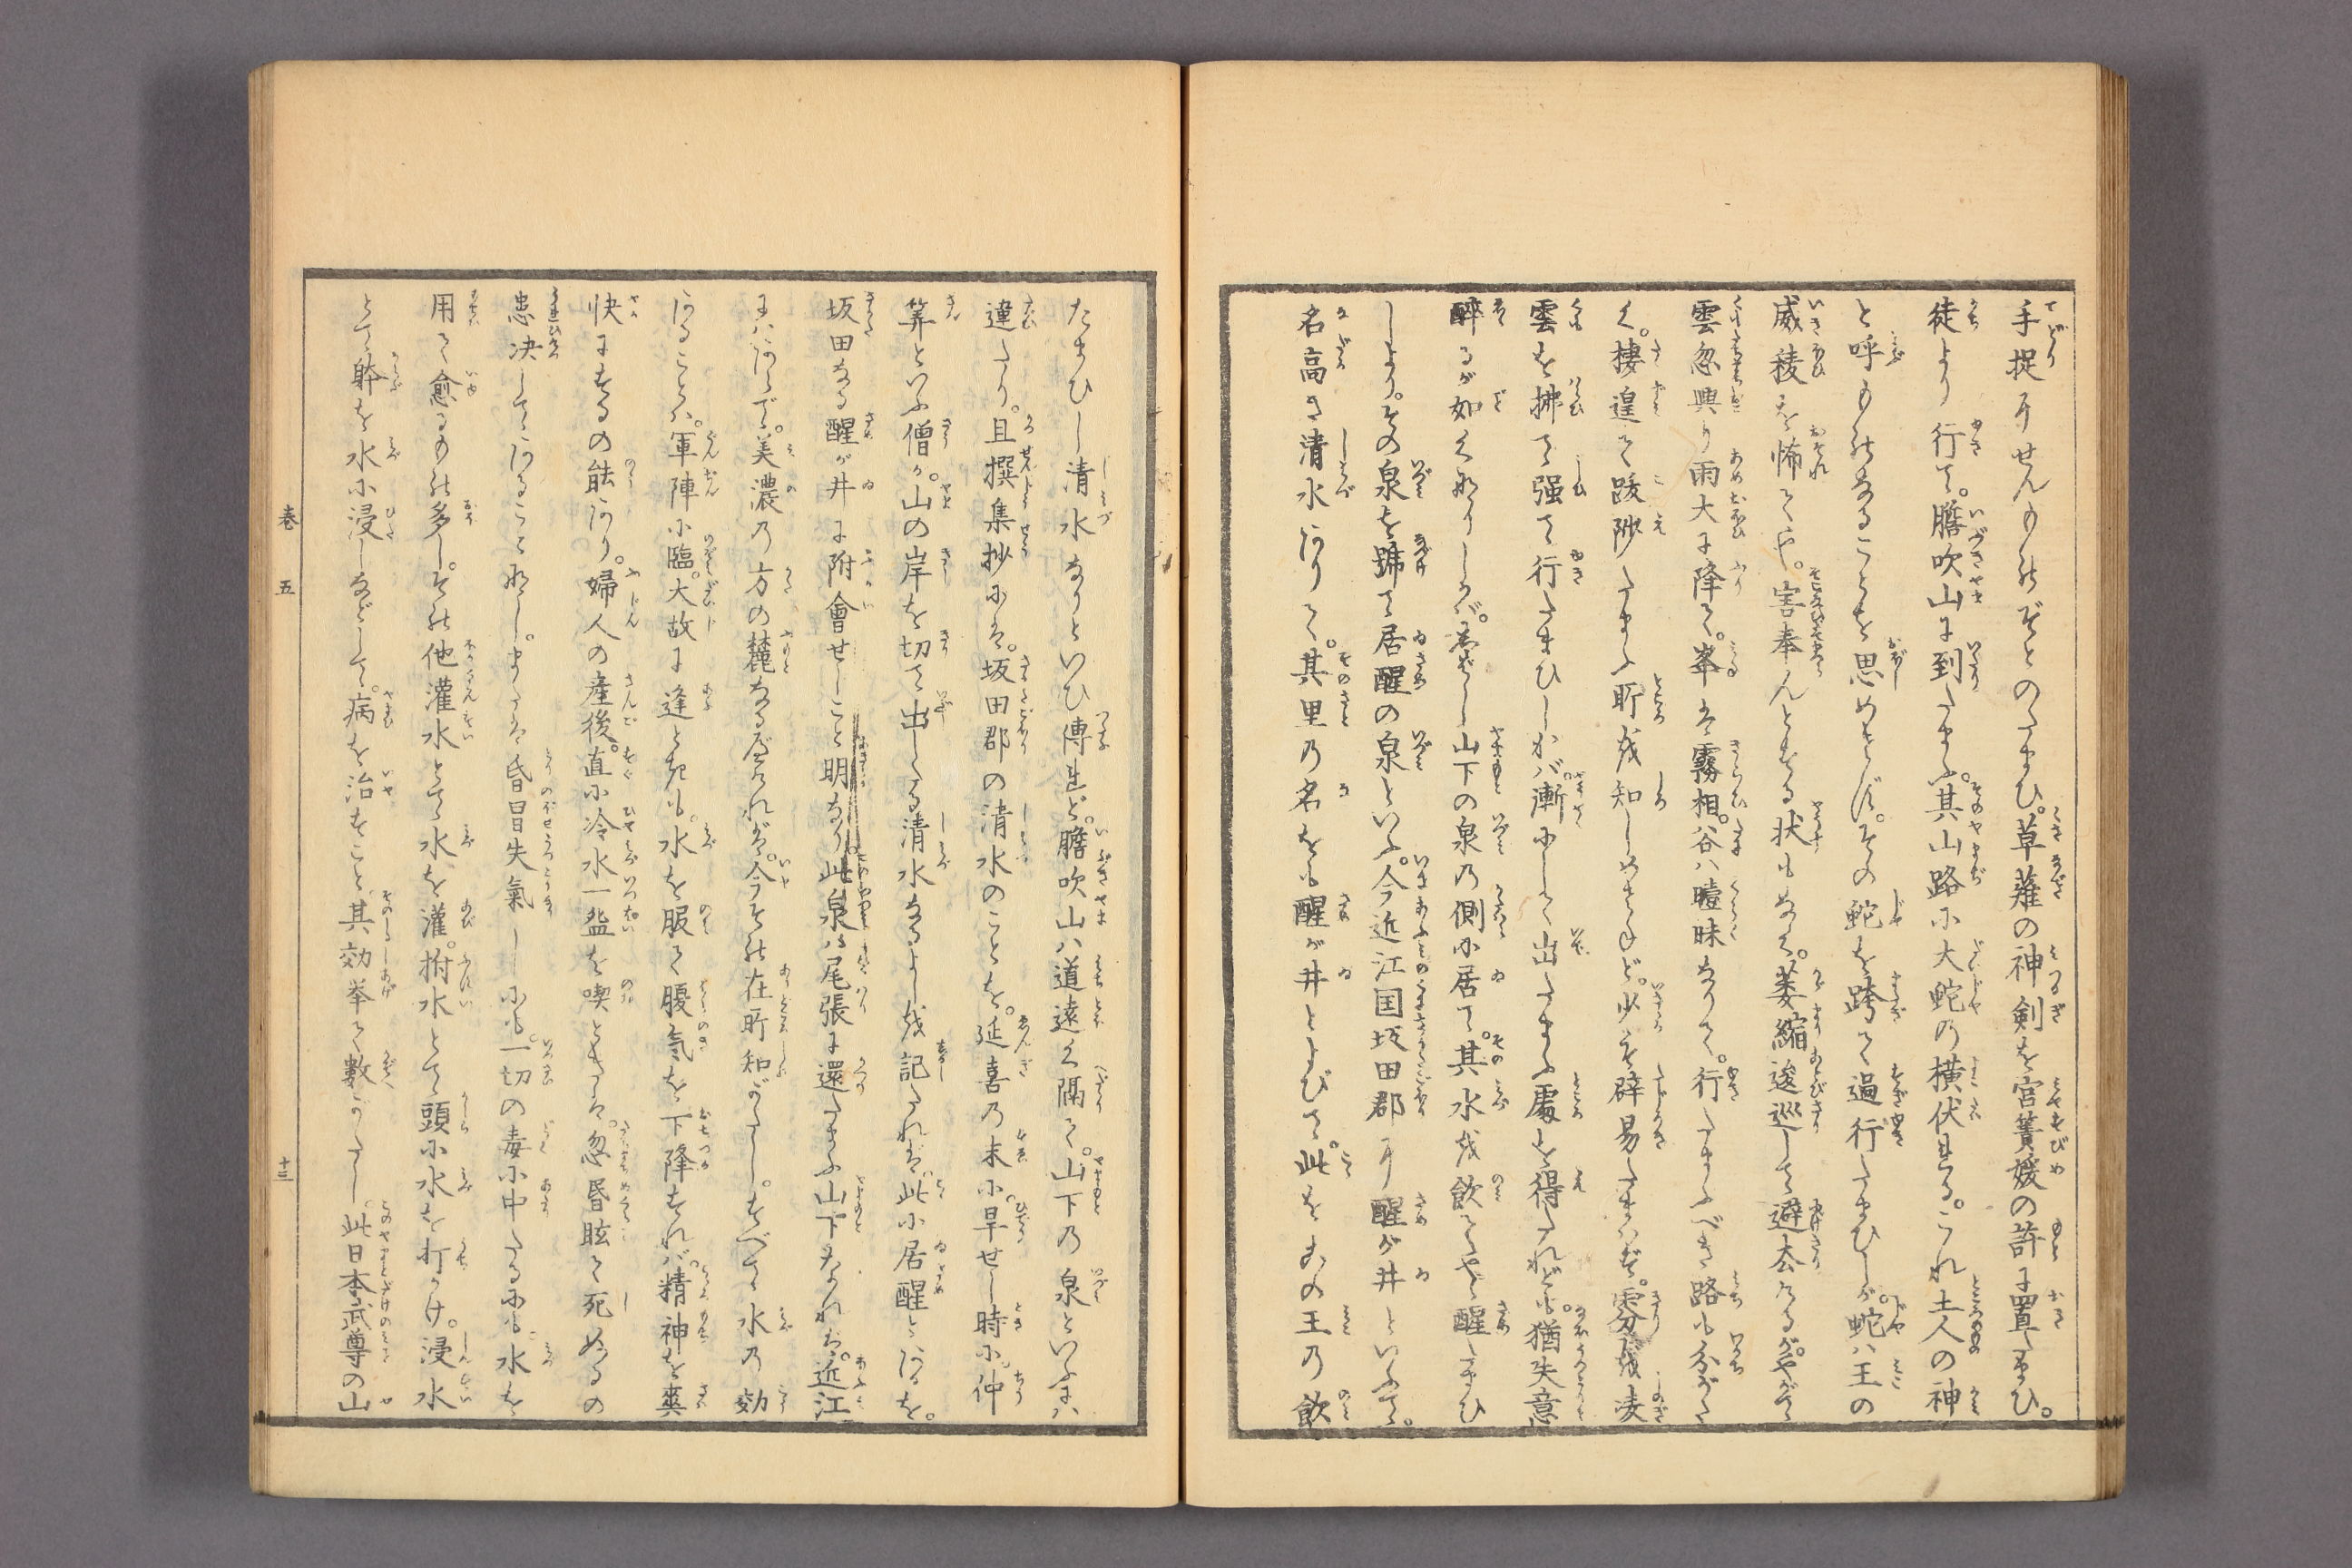 手捉にせんものぞとのたまひ。草薙の神剣を宮簀媛の許に置たまひ。
徒より行て。膽吹山に到たまふ。其山路に大蛇の横伏せる。これ土人の神
と呼ものなることを思めさず。その蛇を跨て過行たまひしが。蛇ハ王の
威稜を怖てや。害奉んとする状もなく。萎縮逡巡して避去けるが。やがて
雲忽興り雨大に降て。峯は霧相。谷ハ曀昧なりて。行たまふべき路も分がた
く。棲遑て跋渉たまふ所を知しめさねど。少も辟易たまはず。雰を凌
雲を拂て强て行たまひしかバ。漸にして出たまふ處を得たれども。猶失意
醉るが如くなりしかバ。暑ぞし山下の泉の側に居て。其水を飲てやゝ醒たまひ
しより。その泉を號て居醒の泉といふ。今近江国坂田郡に醒が井といふて。
名高き清水ありて。其里の名をも醒が井とよびて。此をかの王の飲
たまひし清水なりといひ傳ど。膽吹山ハ道遠く隔て。山下の泉といふには
違たり。且撰集抄には。坂田郡の清水のことを。延喜の末に。旱せし時に仲
筭といふ僧が。山の岸を切て出したる清水なるよしを記たれば。此に居醒とあるを。
坂田なる醒が井に附會せしこと明なり。此泉は尾張に還たまふ山下なれば。近江
にはあらで。美濃の方の麓なるべけれバ。今その在所知がたし。すべて水の効
あることハ。軍陣に臨。大故に逢ときも。水を服て腹気を下降すれバ。精神を爽
快にするの能あり。婦人の産後。直に冷水一盃を喫ときは。忽昏眩て死ぬるの
患决してあることなし。または昏冒失氣しにも。一切の毒に中たるにも。水を
用て愈るもの多し。その他灌水とて水を灌。拊水とて頭に水を打かけ。浸水
とて躰を水に浸しなどして。病を治すこと。其効挙て數がたし。此日本武尊の山
卷 五 十三